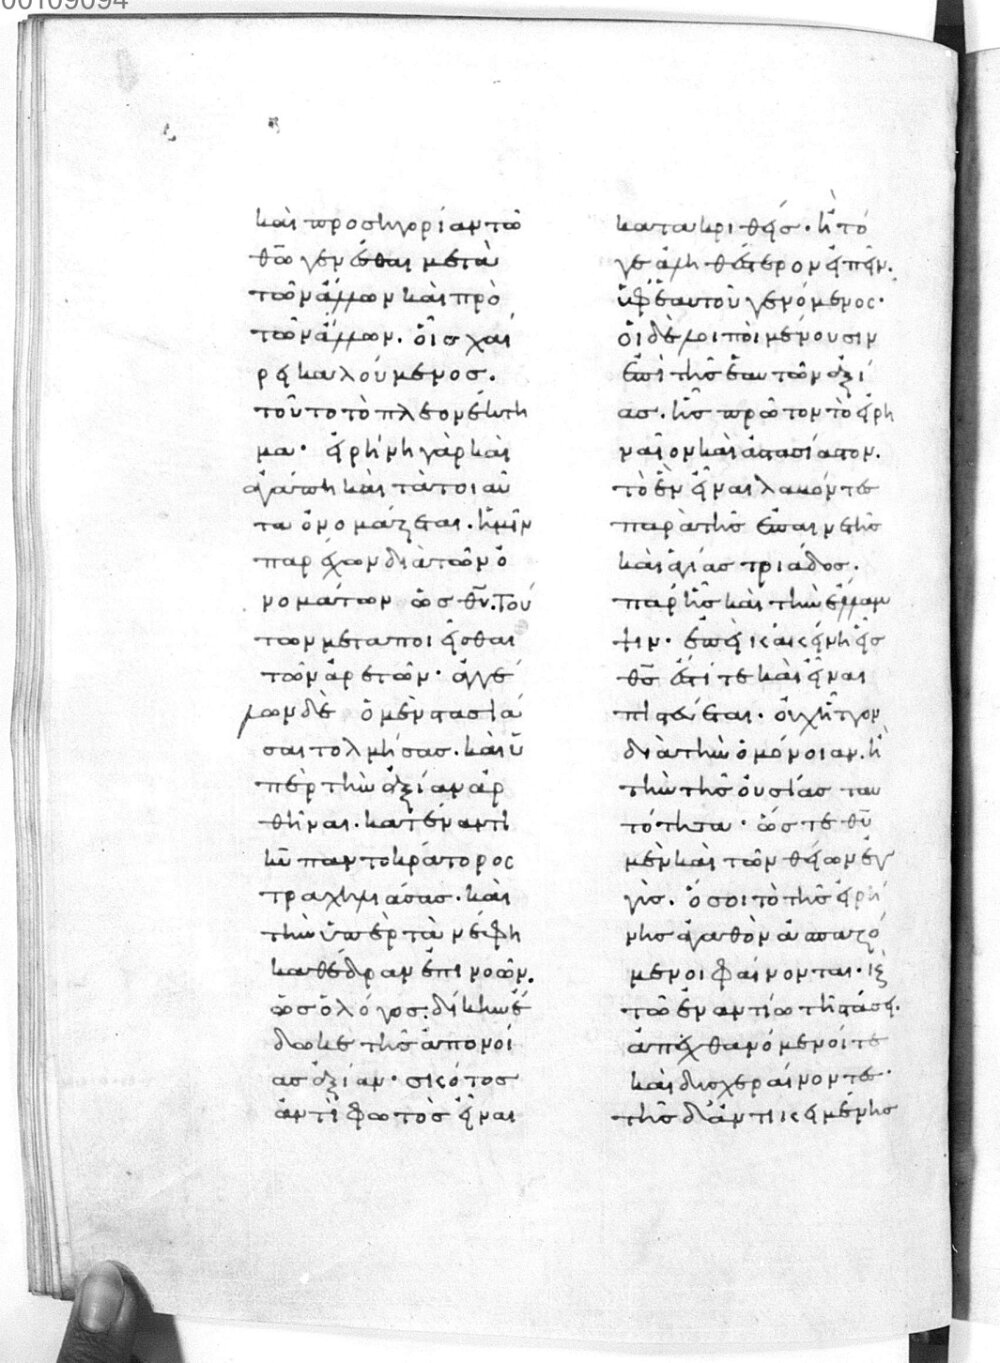 00109094
καὶ προσηγορίαν τῶ
θῶ γενέσθαι μετὰ
τῶν ἄλλων καὶ πρὸ
τῶν ἄλλων. οἷς χαί
ρει καλούμενος.
τοῦτο τὸ πλεονέκτη
μα· εἰρήνη γὰρ καὶ
ἀγάπη καὶ τὰ τοιαῦ
τα ὀνομάζεται. ἡμῖν
παρέχων διὰ τῶν ὀ
νομάτων ὡς θν̄. Τού
των μεταποιεῖσθαι
τῶν ἀρετῶν· ἀγγέ
λων δὲ ὁ μὲν στασιά
σαι τολμήσας. καὶ ὑ
πὲρ τὴν ἀξίαν ἀρ
θῆναι. κατέναντι
κῡ παντοκράτορος
τραχηλιάσας. καὶ
τὴν ὑπὲρ τὰ νέφη
καθέδραν ἐπινοῶν.
ὡς ὁ λόγος: δίκην ἔ
δωκε τῆς ἀπονοί
ας ἀξίαν· σκότος
ἀντὶ φωτὸς εἶναι
κατακριθείς· ἢ τό
γε ἀληθέστερον εἰπεῖν.
ὑφ' ἑαυτοῦ γενόμενος·
οἱ δὲ λοιποὶ μένουσιν
ἐπὶ τῆς ἑαυτῶν ἀξί
ας. ἧς πρῶτον τὸ εἰρη
ναῖον καὶ ἀστασίαστον.
τὸ ἓν εἶναι λαβόντες
παρὰ τῆς ἐπαινετῆς
καὶ ἁγίας τριάδος.
παρ' ἧς καὶ τὴν ἔλλαμ
ψιν· ἐπεὶ κἀκείνη εἷς
θς̄ ἐστί τε καὶ εἶναι
πιστεύεται. οὐχ ἧττον
διὰ τὴν ὁμόνοιαν. ἢ
τὴν τῆς οὐσίας ταυ
τότητα· ὥστε θῡ
μὲν καὶ τῶν θείων ἐγ
γὺς. ὅσοι τὸ τῆς εἰρή
νης ἀγαθὸν ἀσπαζό
μενοι φαίνονται· ἐξ
τῶ ἐναντίω τῆ στάσει.
ἀπεχθανόμενοί τε
καὶ δυσχεραίνοντες·
τῆς δ' ἀντικειμένης